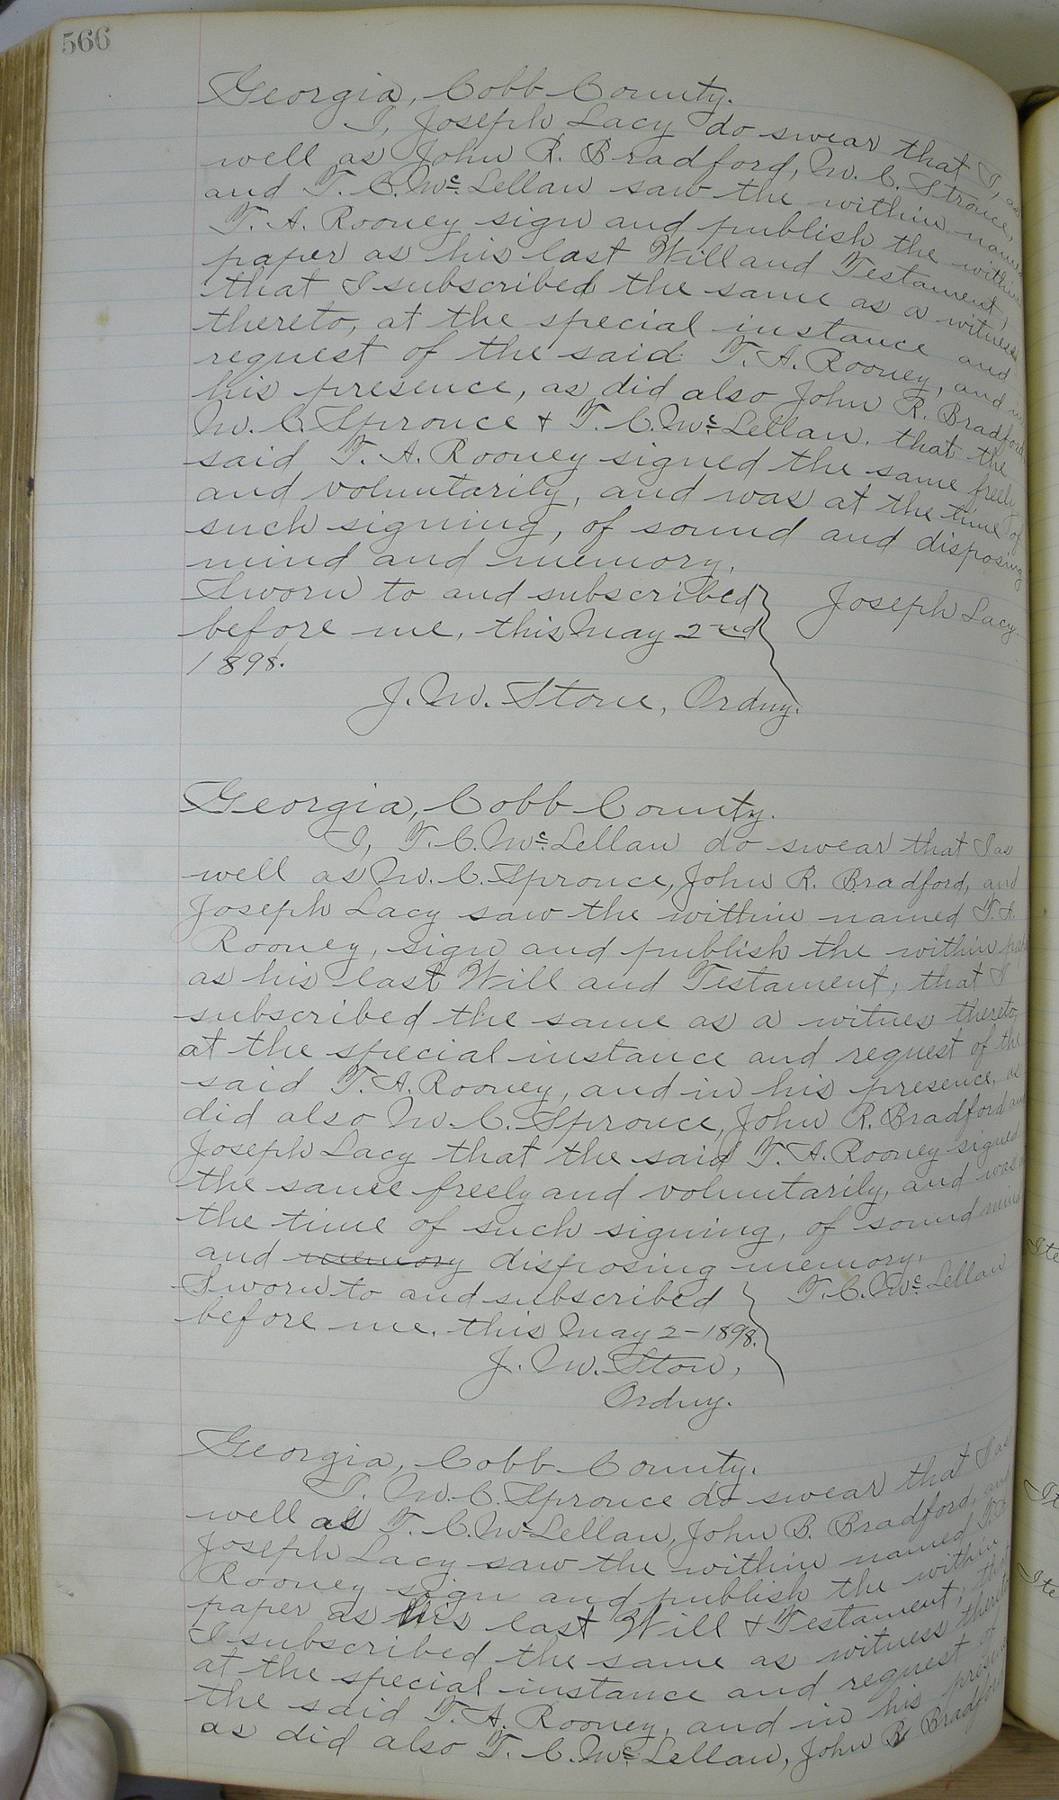 566
Georgia, Cobb County.
I, Joseph Lacy do swear that I, as
well as John R. Bradford, M. C. Sprouce,
and T. C. McLellan saw the within named
T. A. Rooney sign and publish the within
paper as his last Will and Testament,
that I subscribed the same as a witness
thereto, at the special instance and
request of the said T. A. Rooney, and in
his presence, as did also John R. Bradford
M. C. Sprouce & T. C. McLellan. that the
said T. A. Rooney signed the same freely
and voluntarily, and was at the time of
such signing, of sound and disposing
mind and memory.
Sworn to and subscribed
before me, this May 2nd
1898.
Joseph Lacy
J. M. Stone, Ordny.
Georgia, Cobb County.
I, T. C. McLellan do swear that I as
well as M. C. Sprouce, John R. Bradford, and
Joseph Lacy saw the within named T. A.
Rooney, sign and publish the within
as his last Will and Testament, that I
subscribed the same as a witnes thereto,
at the special instance and request of the
said T. A. Rooney, and in his presence, as
did also M. C. Sprouce, John R. Bradford and
Joseph Lacy that the said T. A. Rooney signed
the same freely and voluntarily, and was
the time of such signing, of sound mind
and memory disposing memory.
Sworn to and subscribed
before me. this May 2-1898.
T. C. McLellan
J. M. Ston,
Ordny.
Georgia, Cobb County.
I. M. C. Sprouce do swear that I as
well as T. C. McLellan, John B. Bradford, and
Joseph Lacy saw the within named T. A.
Rooney sign and publish the within
paper as his last Will & Testament, that
I subscribed the same as witness thereto
at the special instance and request of
the said T. A. Rooney, and in his presence
as did also T. C. McLellan, John R Bradford
Ite
It
Ite